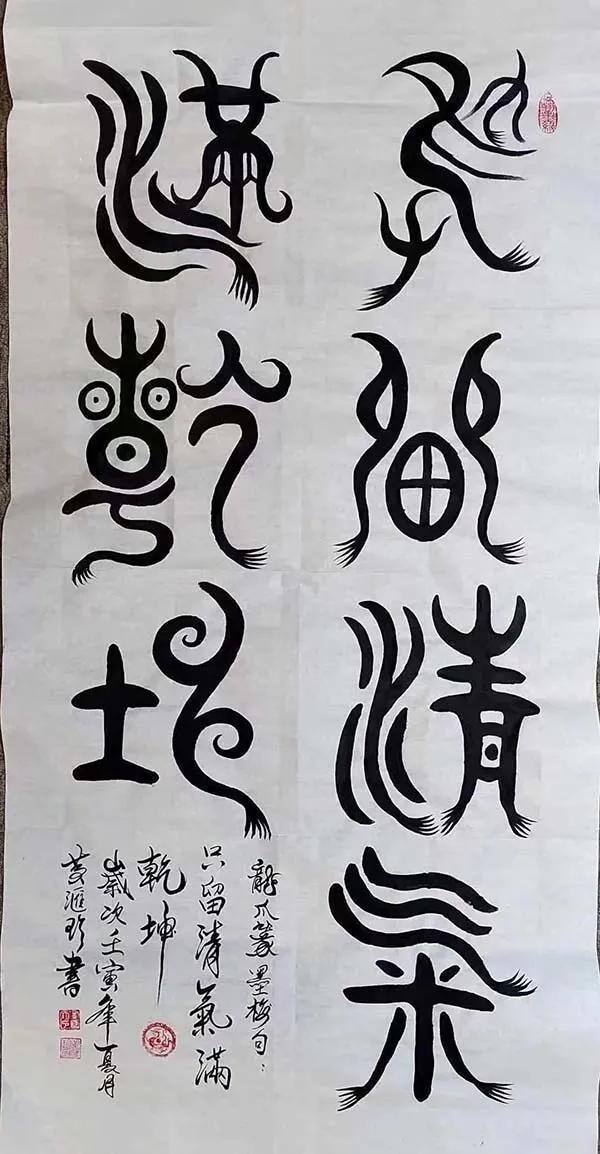 只留清氣
滿乾坤
龍爪篆墨梅句：
只留清氣滿
乾坤
歲次壬寅年夏月
滙珍書